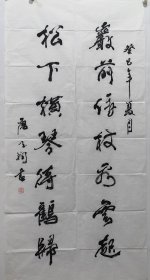 巖前倚杖看雲起
癸巳年夏月
松下横琴待鶴歸
书